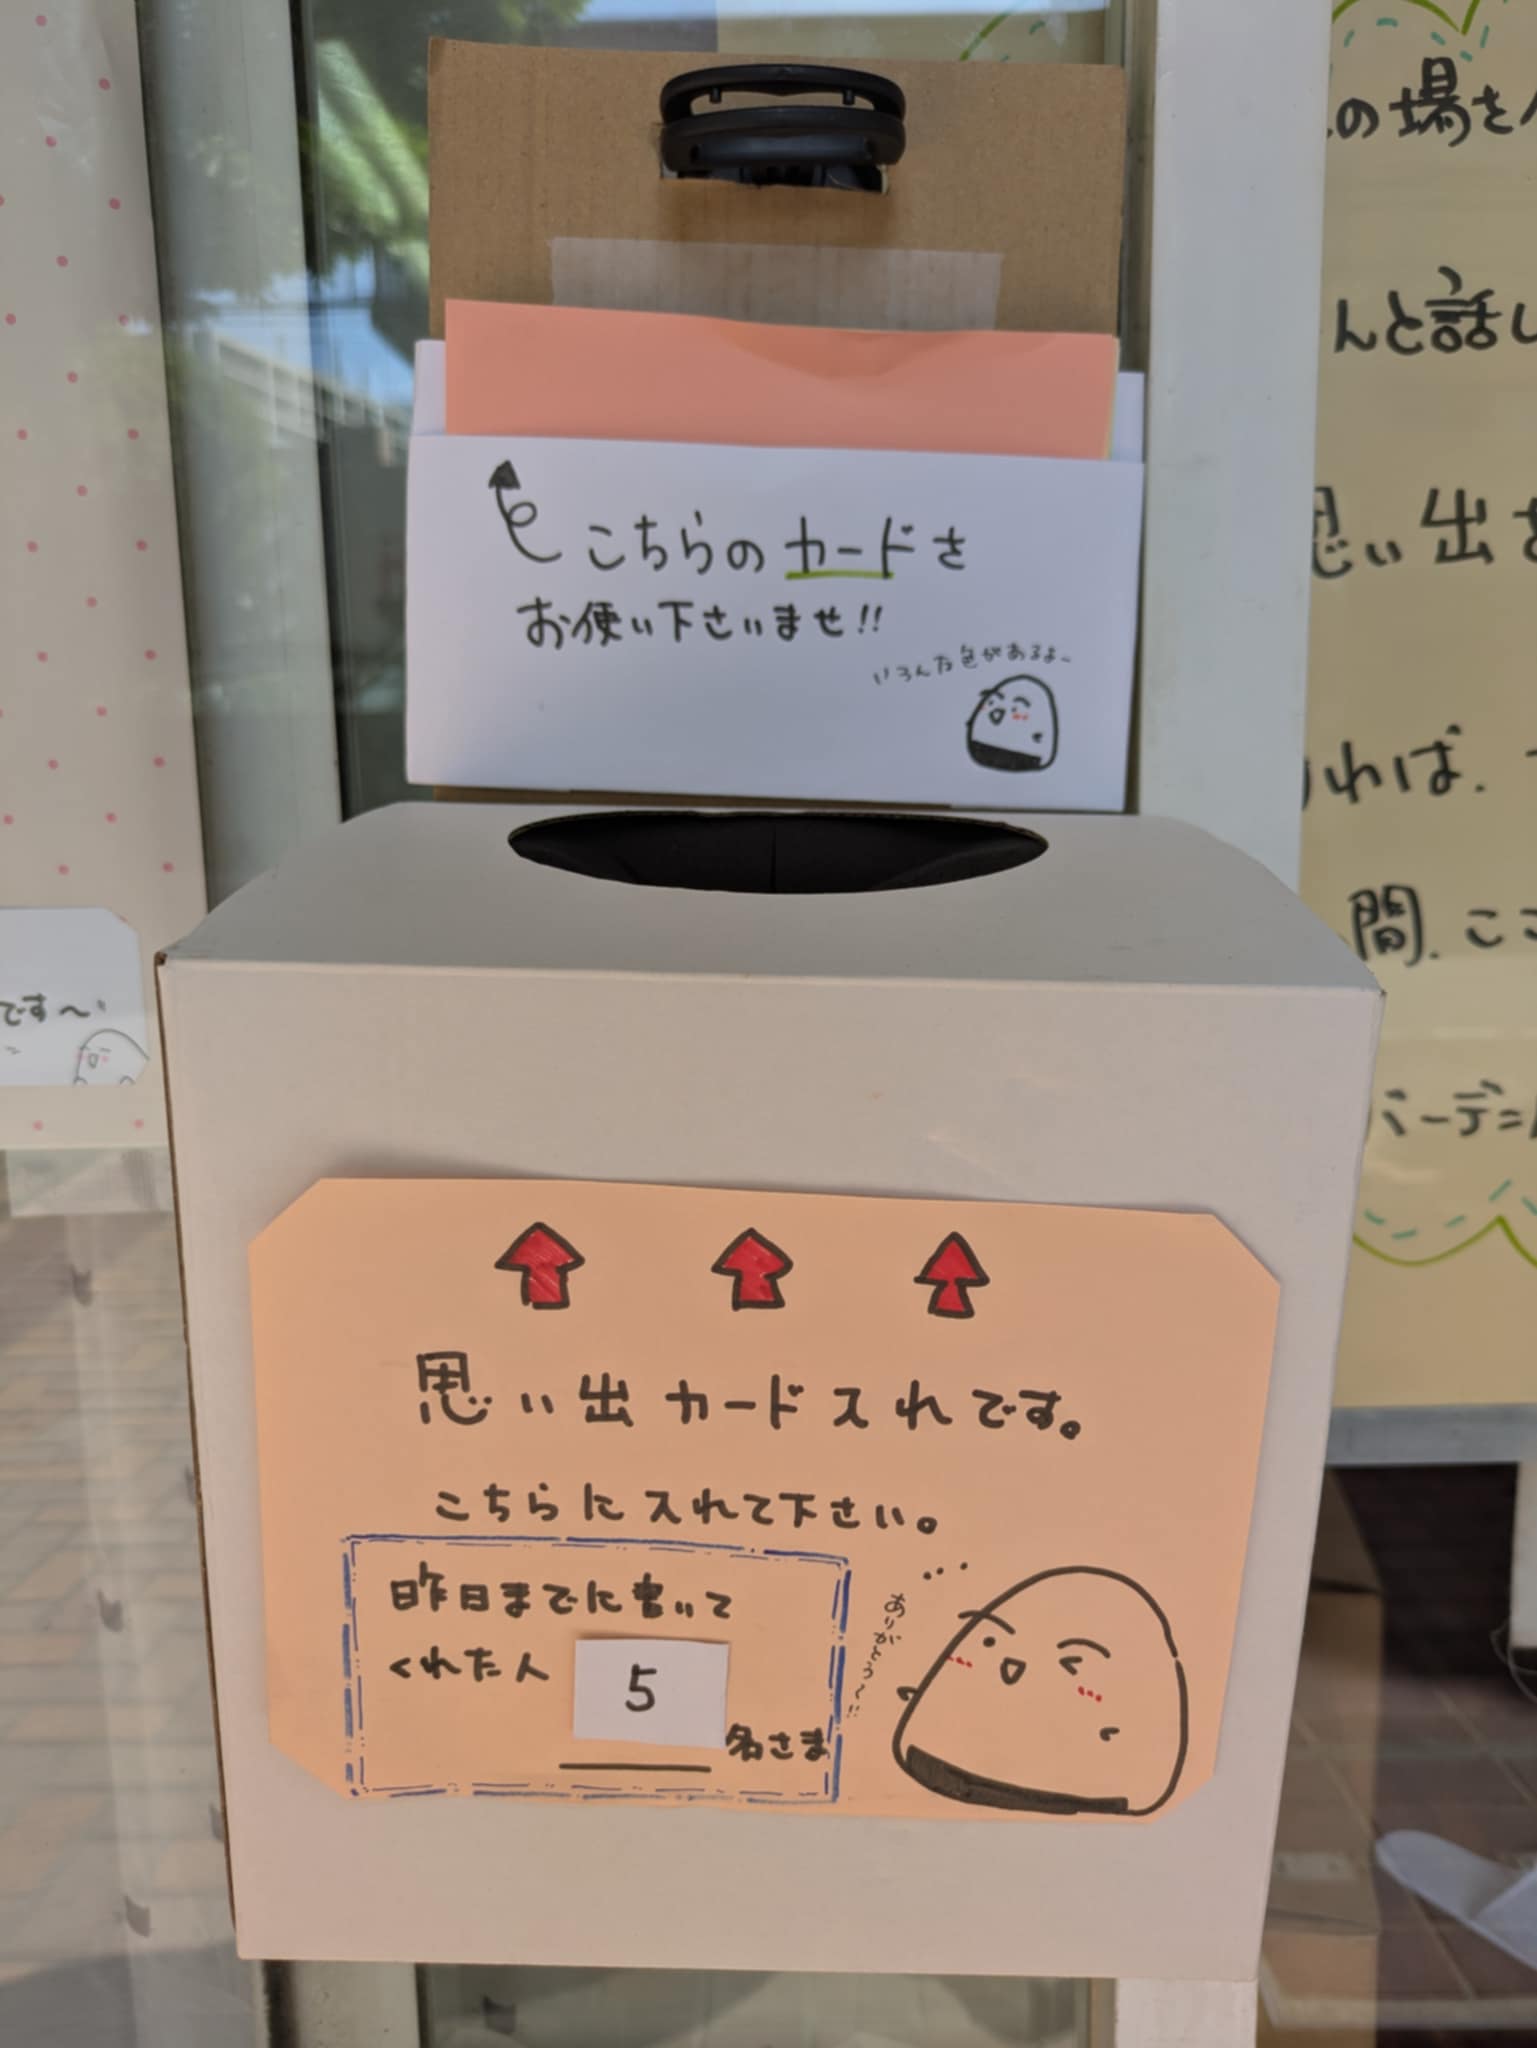 こちらのカードを
お使い下さいませ!!
いろんな色があるよー
思い出カード入れです。
こちらに入れて下さい。
昨日までに書いて
くれた人
5
名さま
ありがとう〜!!
です〜
の場を
んと話し
思い出を
れば、
間、ここ
バーデン